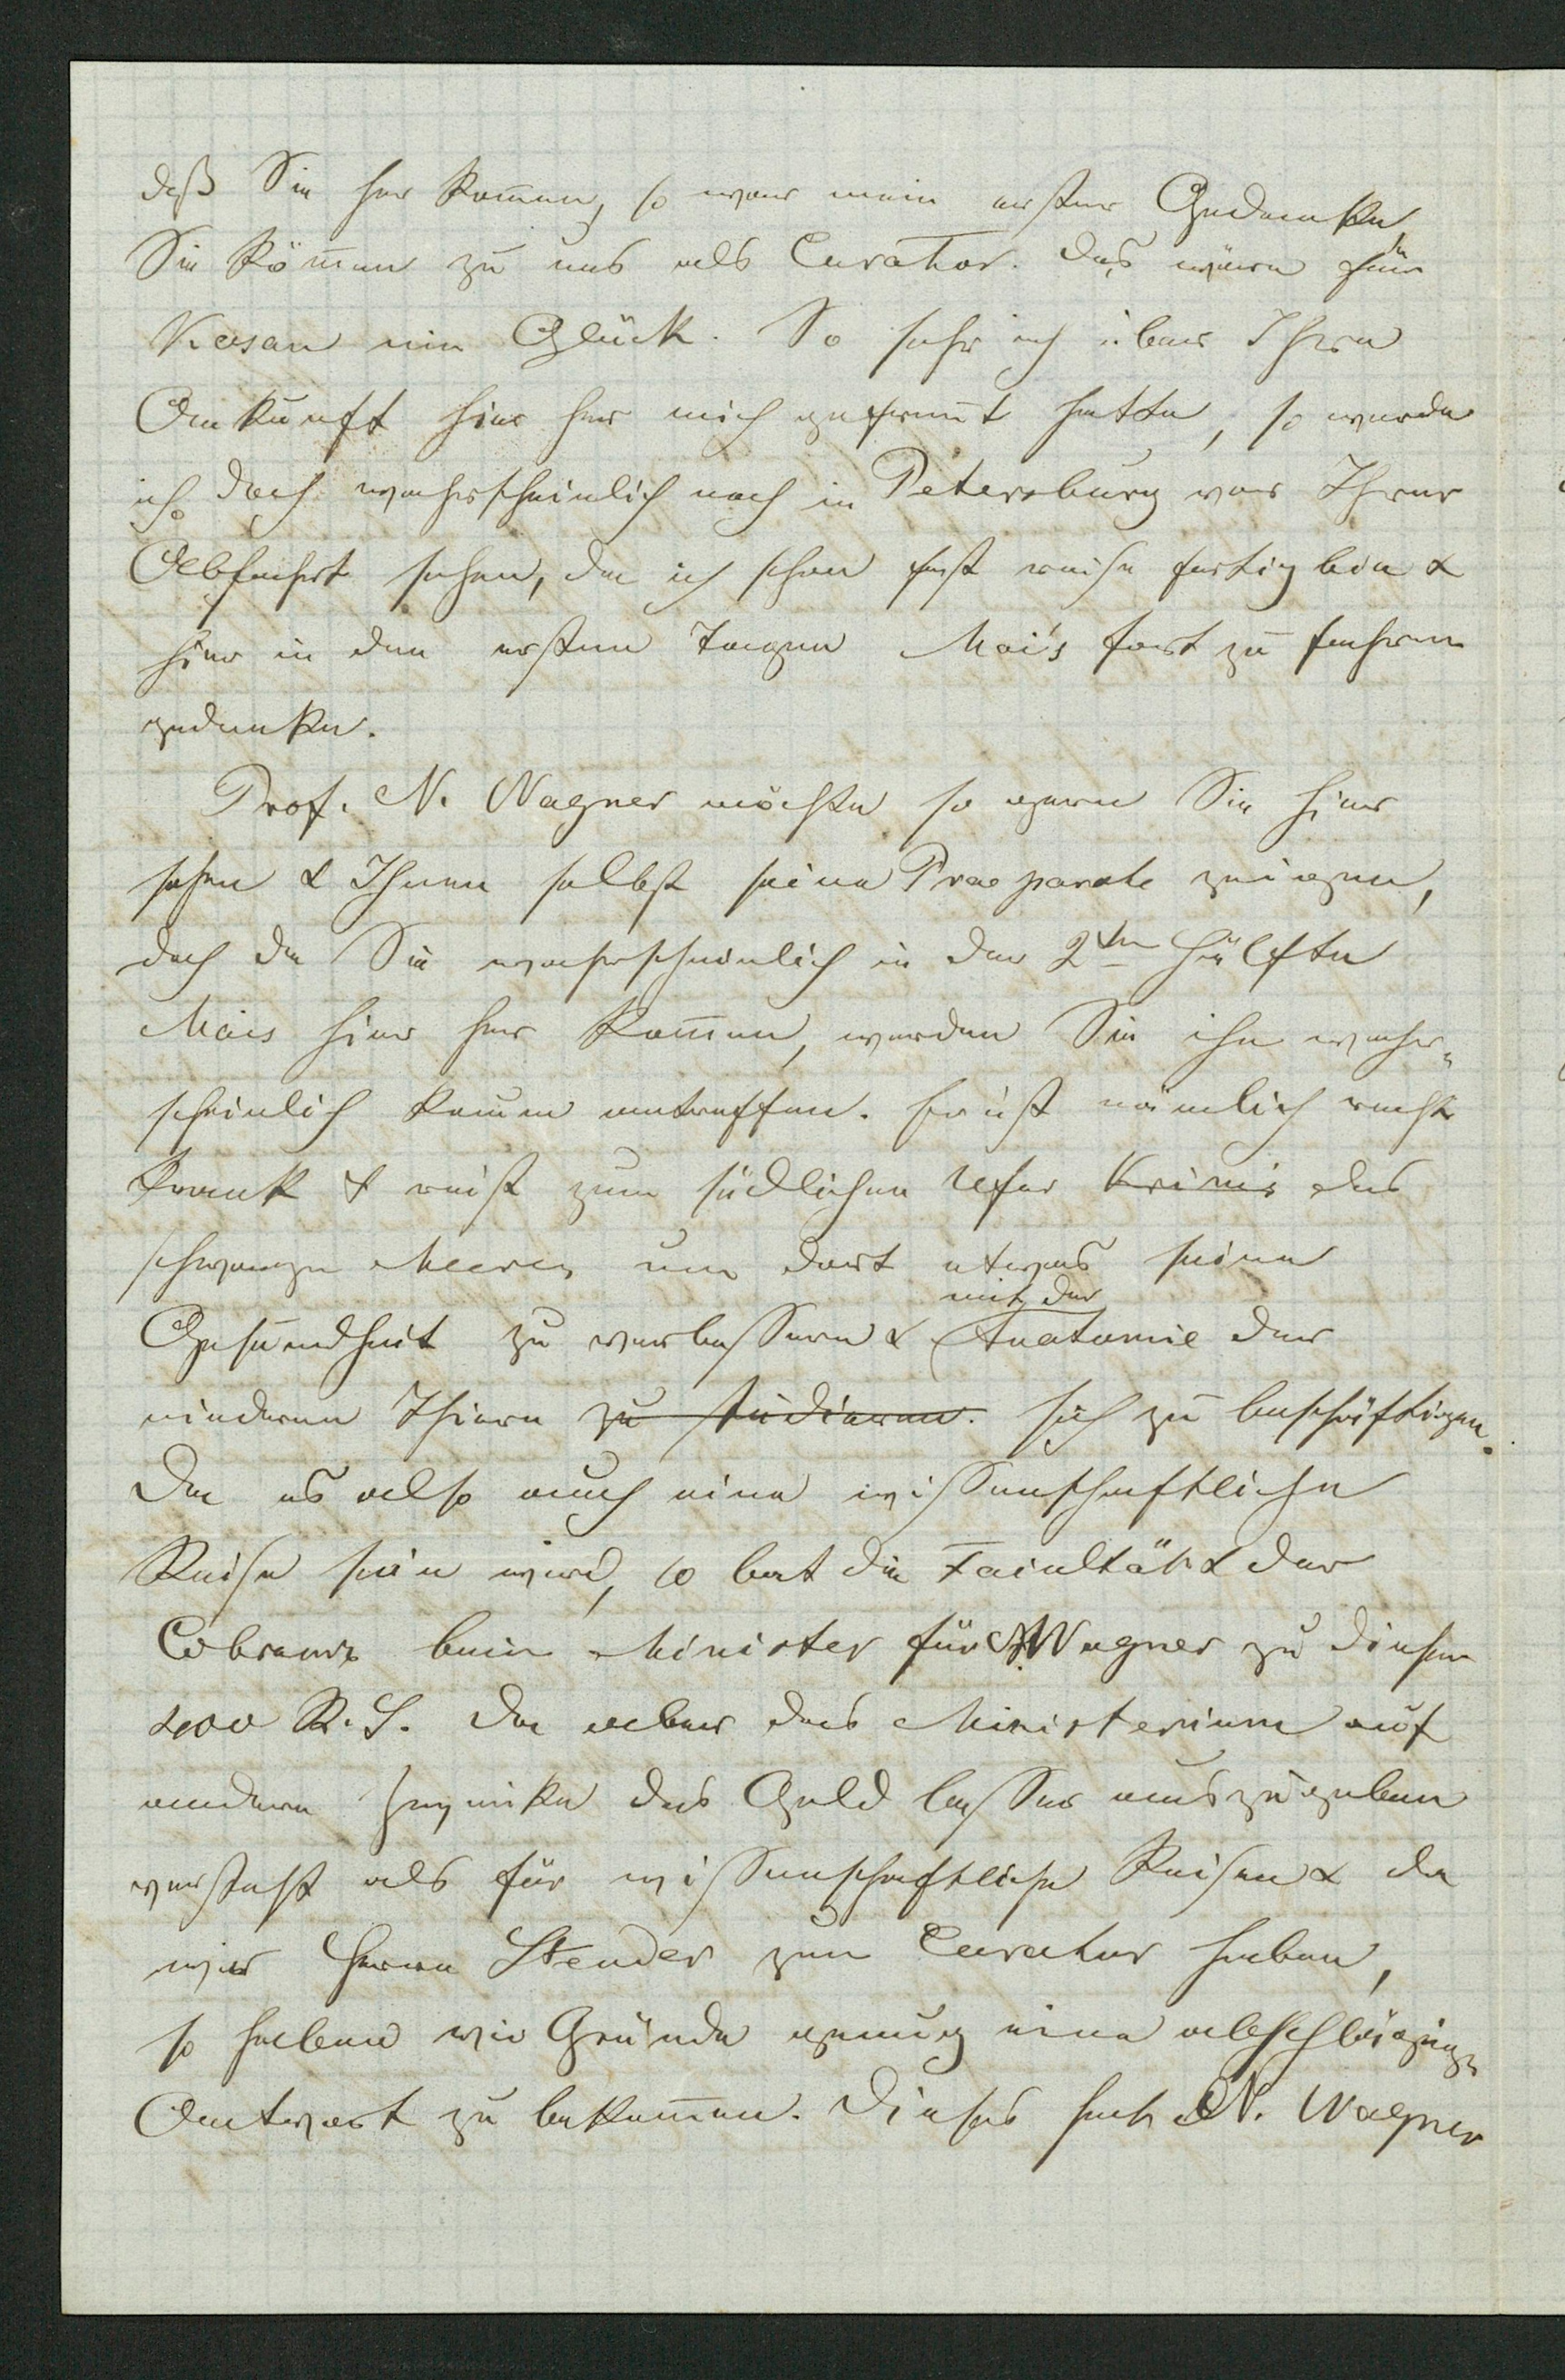 daß Sie her kom̄en, so war mein erster Gedanke,
Sie köm̄en zu uns als Curator. Das wäre für
Kasan ein Glück. So sehr ich über Ihre
Ankunft hier her mich gefreut hatte, so werde
ich doch wahrscheinlich noch in Petersburg vor Ihrer
Abfahrt sehen, da ich schon fast reise fertig bin &
hier in den ersten Tagen Mai's fort zu fahren
gedenke.
Prof. N. Wagner möchte so gern Sie hier
sehen & Ihnen selbst seine Praeparate zeigen,
doch da Sie wahrscheinlich in der 2ten Hälfte
Mais hier her kom̄en, werden Sie ihn wahr-
scheinlich kaum antreffen. Er ist nämlich recht
krank & reist zum südlichen Ufer Krims des
schwarzen Meeres um dort etwas seine
mit der
Gesundheit zu verbessern & Anatomie der
niederen Thiere zu studieren. sich zu beschäftigen.
Da es also auch eine wissenschaftliche
Reise sein wird, so bat die Facultät & der
beim Minister für N. Wagner zu diesem
400 R. S. Da aber das Ministerium auf
andere Zwecke das Geld besser auszugeben
versteht als für wissenschaftliche Reisen & da
wir Herrn Stender zum Curator haben,
so haben wir Gründe genug eine abschlägige
Antwort zu bekom̄en. Dieses hat N. Wagner